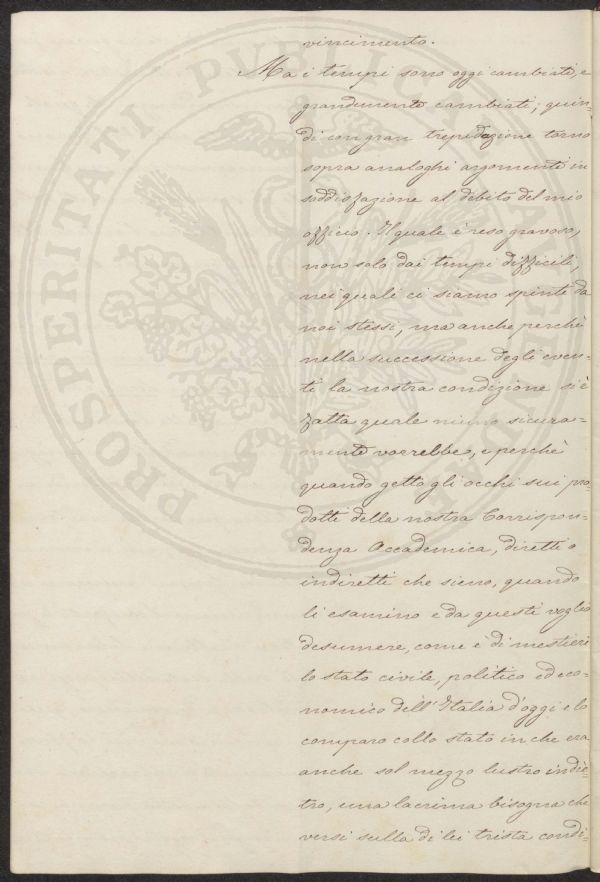 vincimento.
Ma i tempi sono oggi cambiati, e
grandemente cambiati; quin=
di con gran trepidazione torno
sopra analoghi argomenti in
soddisfazione al debito del mio
officio. Il quale è reso gravoso,
non solo dai tempi difficili,
nei quali ci siamo spinti da
noi stessi, ma anche perchè
nella successione degli even=
ti la nostra condizione si è
fatta quale niuno sicura=
mente vorrebbe, e perchè
quando getto gli occhi sui pro=
dotti della nostra Corrispon=
denza Accademica, diretti o
indiretti che sieno, quando
li esamino e da questi voglio
desumere, come è di mestieri
lo stato civile, politico ed eco=
nomico dell'Italia d'oggi e lo
comparo collo stato in che era
anche sol mezzo lustro indie=
tro, una lacrima bisogna che
versi sulla di lei trista condi=
PROSPERITATI PUBLICAE AUGENDAE